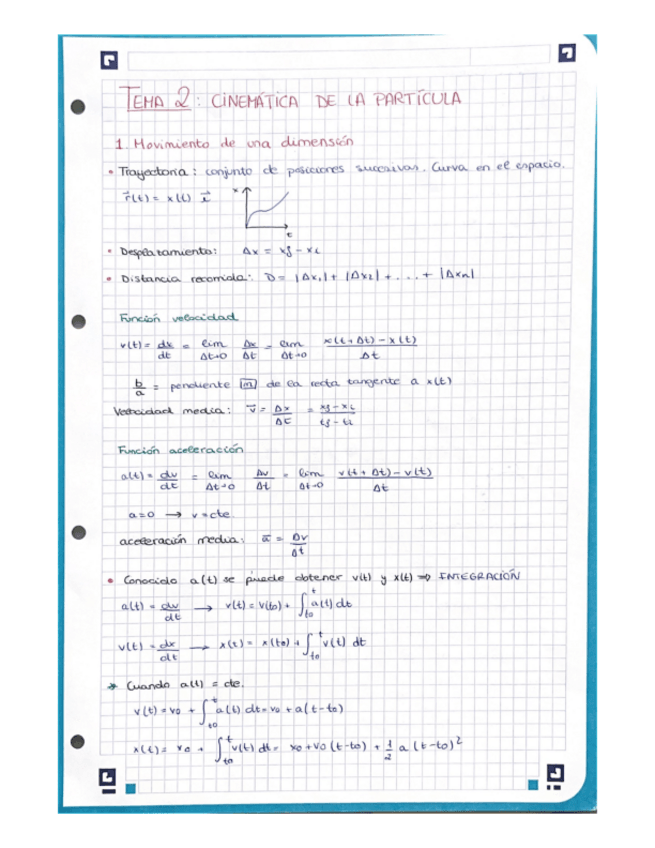 TEMA 2: CINEMÁTICA DE LA PARTÍCULA
1. Movimiento de una dimensión
• Trayectoria: conjunto de posiciones sucesivas. Curva en el espacio.
r⃗(t) = x(t) i⃗
x
t
• Desplazamiento: Δx = xf - xi
• Distancia recorrida: D = |Δx₁| + |Δx₂| + ... + |Δxn|
Función velocidad
v(t) = dx/dt = lim Δt→0 Δx/Δt = lim Δt→0 (x(t+Δt) - x(t))/Δt
b/a = pendiente [m] de la recta tangente a x(t)
Velocidad media: v̄ = Δx/Δt = (xf - xi)/(tf - ti)
Función aceleración
a(t) = dv/dt = lim Δt→0 Δv/Δt = lim Δt→0 (v(t+Δt) - v(t))/Δt
a=0 → v=cte
aceleración media: ā = Δv/Δt
• Conocido a(t) se puede obtener v(t) y x(t) ⇒ INTEGRACIÓN
a(t) = dv/dt → v(t) = v(t₀) + ∫ₜ₀ᵗ a(t) dt
v(t) = dx/dt → x(t) = x(t₀) + ∫ₜ₀ᵗ v(t) dt
* Cuando a(t) = cte.
v(t) = v₀ + ∫ₜ₀ᵗ a(t) dt = v₀ + a(t-t₀)
x(t) = x₀ + ∫ₜ₀ᵗ v(t) dt = x₀ + v₀(t-t₀) + 1/2 a (t-t₀)²